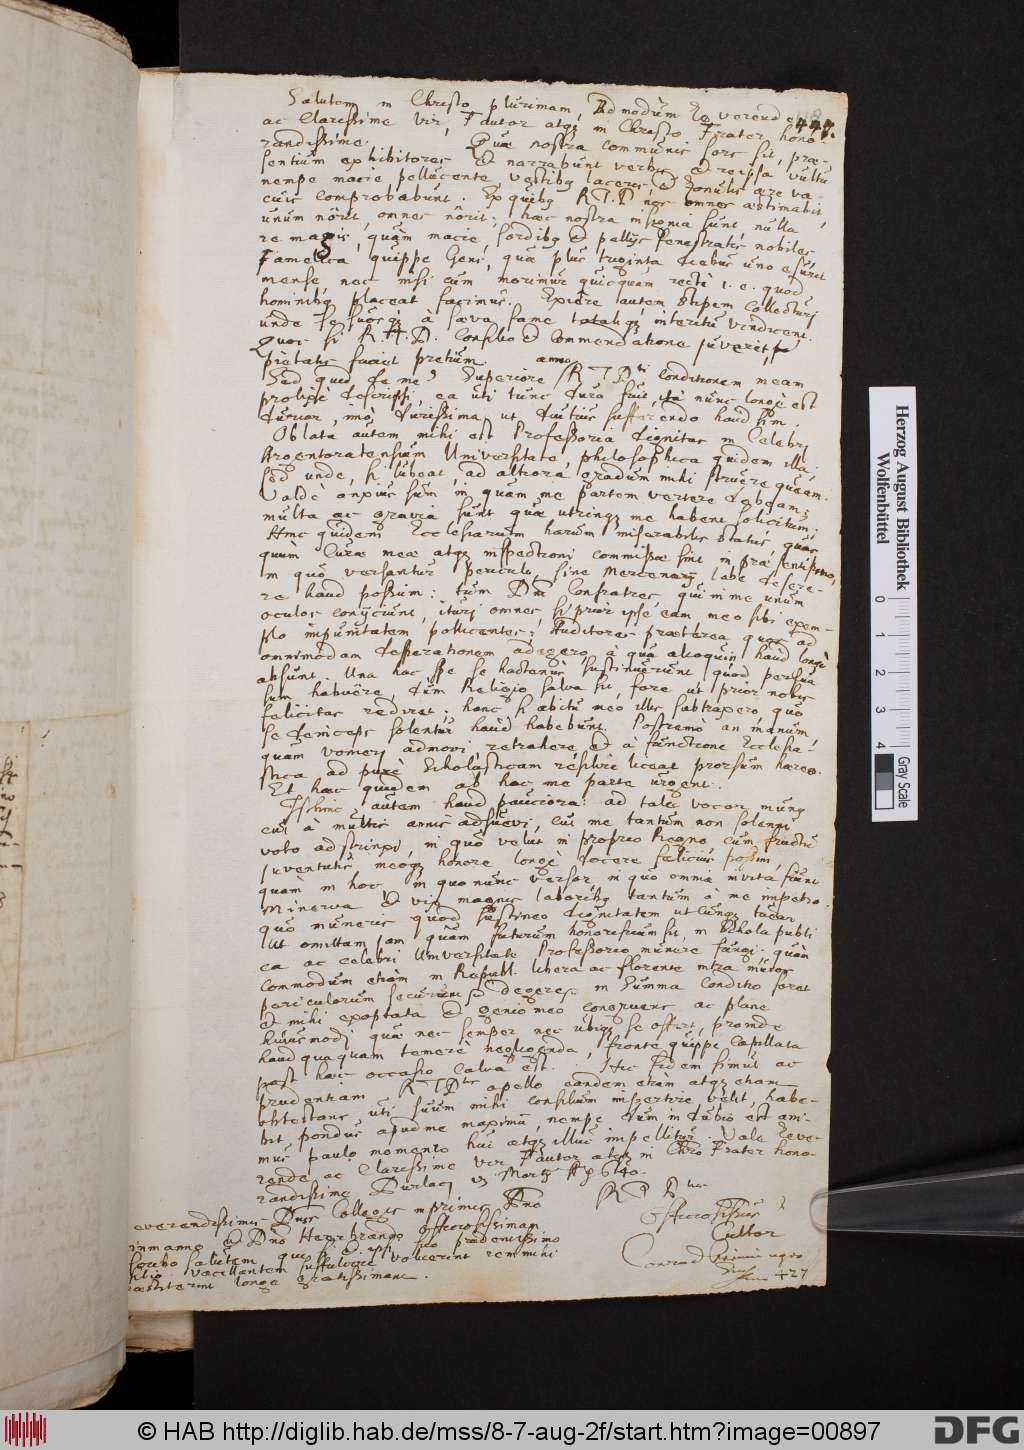 Salutem in Christo plurimam, Admodum Reverende
ac Clarissime vir, Fautor atq in Christo Frater, hono-
randissime. Quæ nostra communis sors sit, præ-
sentium exhibitores et narrabunt verbis et reipsa vultu
nempe macie pellucente vestibq laceris, et ære va-
cuis comprobabunt. Ex quibq R T D nos omnes æstimabit,
unum nôrit, omnes nôrit; hæc nostra sunt, nulla
re magis, quàm macie, sordibq et pallijs fenestratis nobiles
Famelica quippe Gens, quæ plus triginta diebus uno esurit
mense, nec nisi cum morimur quicquam rectè i. e. quod
hominibq placeat facimus. Exiêre autem stipem collecturi
unde se suosq à sæva fame interitu vindicent.
Quos si R. T. D. consilio et commendatione juverit,
pietatis faciet pretium. anno
Sed quid de me? Superiore R T D conditionem meam
prolixè descripsi, ea uti tunc dura fuit, ita nunc longè est
durior, imò durissima, ut diutius sufferendo haud sim.
Oblata autem mihi est Professoria dignitas in Celebri
Argentoratensium Universitate, philosophica quidem illa,
sed unde, si lubeat, ad altiora gradum mihi struere queam.
Valdè anxius sum in quam me partem vertere debeam;
multa ac gravia sunt quæ utrinq me habent solicitum.
Hinc quidem Ecclesiarum harum miserabilis status, quas
quum curæ meæ atq inspectioni commissæ sint in præsentissimo,
in quo versantur periculo, sine mercenarij labe desere-
re haud possum: tum Dni Confratres, qui in me unum
oculos conijciunt, ituri omnes, si prior ipse eam meo sibi exem-
plo impunitatem pollicentes; Auditores præterea quos ad
omnimodam desperationem adigero, à quâ alioquin haud longè
absunt. Una hac spe se hactenus sustinuerunt quod persua
sum habuêre, dum Religio salva sit, fore ut prior nobis
felicitas redeat; hanc si abitu meo illis subtraxero, quo
se deinceps solentur haud habebunt. Postremò an manum,
quam vomeri admovi retrahere, et à functione Ecclesia-
stica ad purè Scholasticam resilire liceat prorsum hæreo.
Et hæc quidem ab hac me parte urgent.
Istinc autem haud pauciora: ad tale vocor munq
cui à multis annis adsuevi, cui me tantum non solenni
voto adstrinxi, in quo velut in proprio Regno cum fructu
juventutis, meoq honore longè docere felicius possim,
quam in hoc, in quo nunc versor, in quo omnia invita fiunt
Minerva et vix magnis laboribq tantum à me impetro,
quo muneris quod sustineo dignitatem utcunq tuear
Ut omittam jam, quàm futurum honorificum sit, in Schola publi
ca ac celebri Universitate Professorio munere fungi: quàm
commodum etiam in Republ. libera ac florente intra muros
periculorum securum degere. In Summa conditio foret
et mihi exoptata et genio meo congruens ac plane
hujusmodi quæ nec semper nec ubiq se offert, proinde
haud quaquam temerè negligenda, fronte quippe capillata
post hæc occasio calva est. Hic fidem simul ac
prudentiam R T D apello eandem etiam atq etiam
obtestans, uti suum mihi consilium impertire velit, habe-
bit pondus apud me maximum, nempe dum in dubio est ani-
mus paulo momento huc atq illuc impellitur. Vale Reve-
rende ac Clarissime Vir Fautor atq in Chro Frater hono-
randissime Durlaci Martij 1640.
R T D
Officiosissus
Cultor
Conrad
everendissimis Dnis Collegis inprimis Dno
inmanno et Dno Herrbrando officiosissimam
scribo salutem
vacillantem suffulcire voluerint rem mihi
æstiterint longe gratissimam.
427
Herzog August Bibliothek
Wolfenbüttel
0 1 2 3 4
Gray Scale
© HAB http://diglib.hab.de/mss/8-7-aug-2f/start.htm?image=00897
DFG